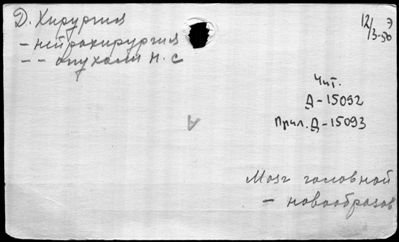 Д. Хирургия
– нейрохирургия
– – опухоли н. с
12/3-56
Э
Чит.
Д-15092
Прил. Д-15093
А
Мозг головной
– новообразов